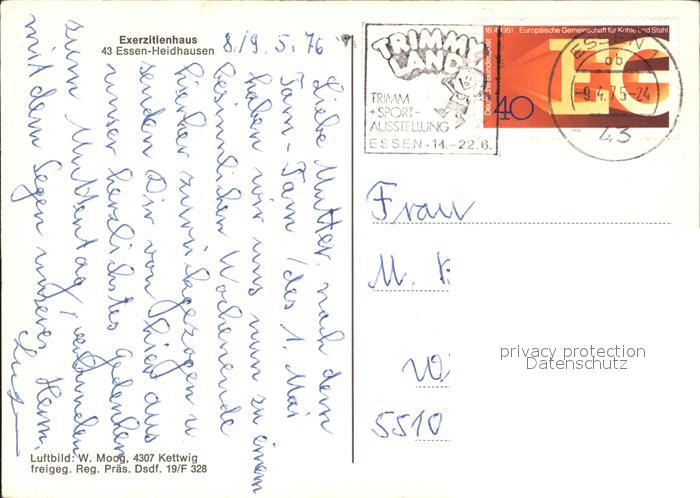 Exerzitienhaus
43 Essen-Heidhausen
8./9. 5. 76
Liebe Mutter, nach dem
Tam-Tam des 1. Mai
haben wir uns nun zu einem
besinnlichen Wochenende
hierher zurückgezogen u.
senden Dir von hier aus
unser herzlichstes Gedenken
zum Muttertag, verbunden
mit dem Segen unseres Herrn.
Luftbild: W. Moog, 4307 Kettwig
freigeg. Reg. Präs. Dsdf. 19/F 328
TRIMMY
LAND
TRIMM
+SPORT-
AUSSTELLUNG
ESSEN·14.–22.6.
18.4.1951 Europäische Gemeinschaft für Kohle und Stahl
Deutsche Bundespost
40
ESSEN
ob
-9.4.75-24
43
Frau
M.
5510
privacy protection
Datenschutz